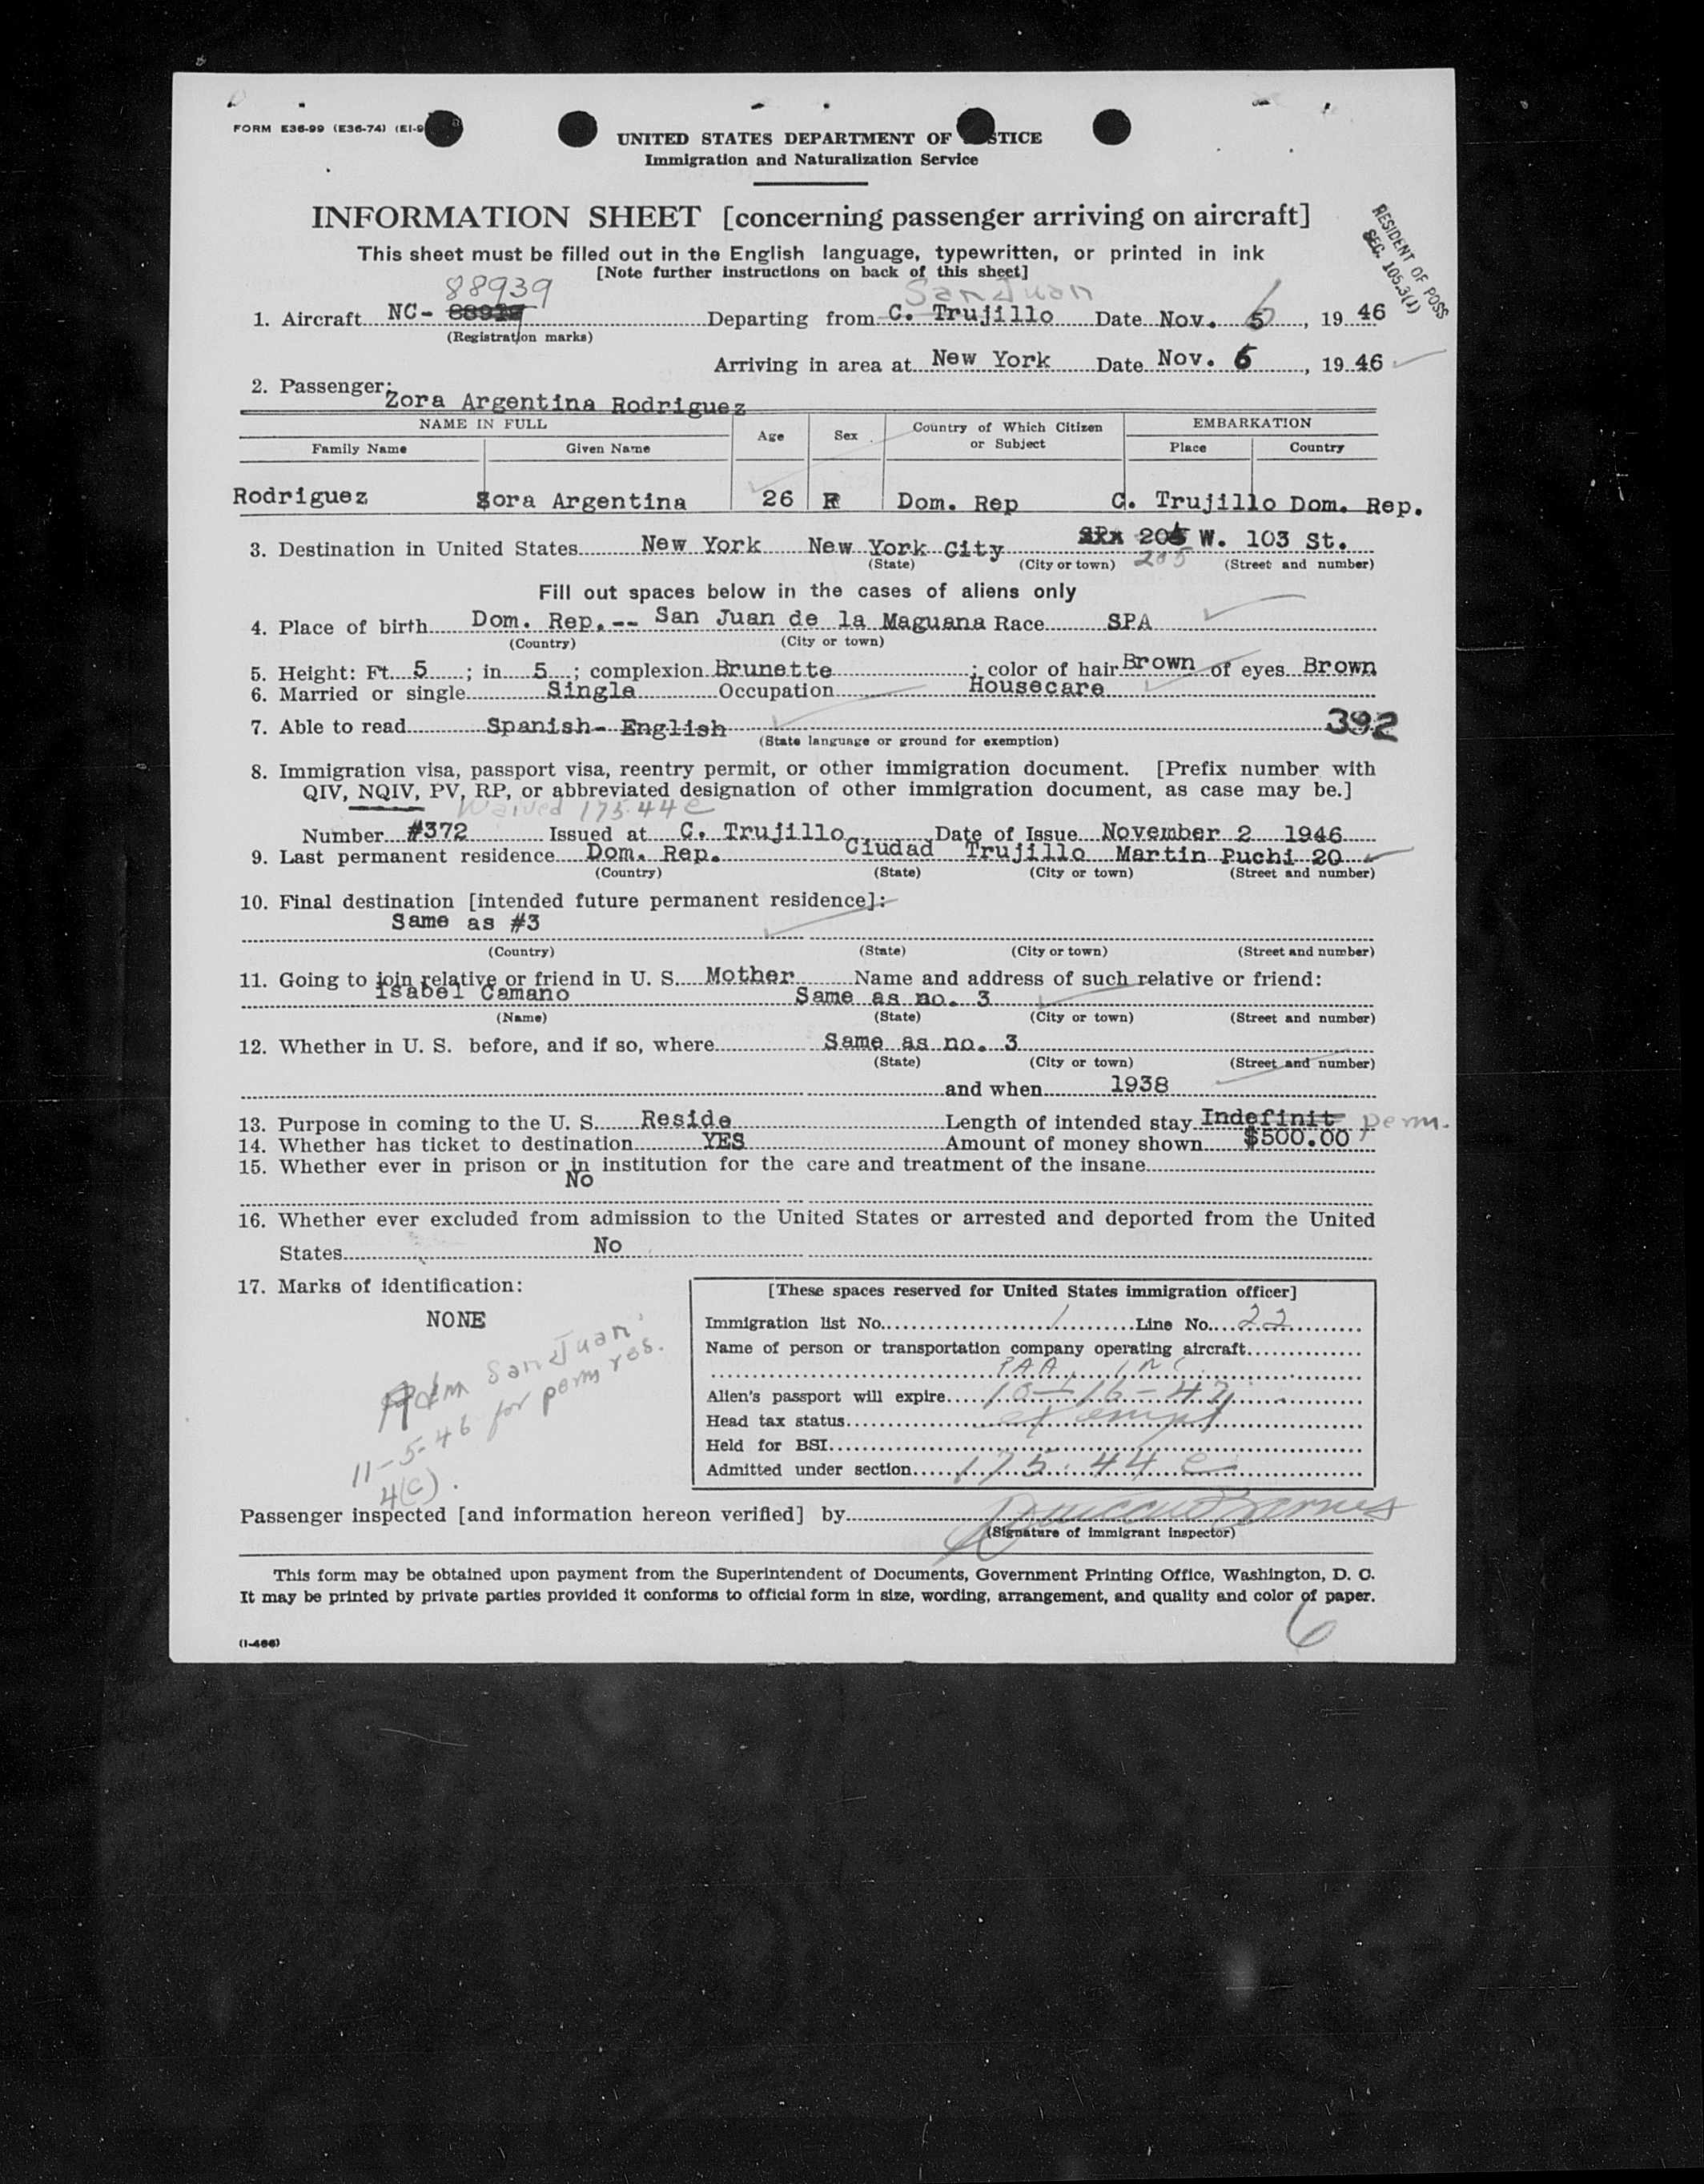 FORM E36-99 (E36-74) (EI-9
UNITED STATES DEPARTMENT OF STICE
Immigration and Naturalization Service
INFORMATION SHEET [concerning passenger arriving on aircraft]
This sheet must be filled out in the English language, typewritten, or printed in ink
[Note further instructions on back of this sheet]
RESIDENT OF POSS
SEC. 105.3(J)
88939 San Juan
1. Aircraft NC- Departing from C. Trujillo Date Nov. 6, 19 46
(Registration marks)
Arriving in area at New York Date Nov. 6, 19 46
2. Passenger: Zora Argentina Rodriguez
NAME IN FULL Age Sex Country of Which Citizen or Subject EMBARKATION
Family Name Given Name Place Country
Rodriguez Zora Argentina 26 F Dom. Rep C. Trujillo Dom. Rep.
3. Destination in United States New York New York City 205 W. 103 St.
(State) (City or town) 205 (Street and number)
Fill out spaces below in the cases of aliens only
4. Place of birth Dom. Rep.-- San Juan de la Maguana Race SPA
(Country) (City or town)
5. Height: Ft. 5; in 5; complexion Brunette; color of hair Brown of eyes Brown
6. Married or single Single Occupation Housecare
7. Able to read Spanish- English 392
(State language or ground for exemption)
8. Immigration visa, passport visa, reentry permit, or other immigration document. [Prefix number with
QIV, NQIV, PV, RP, or abbreviated designation of other immigration document, as case may be.]
Waived 175.44 e
Number #372 Issued at C. Trujillo Date of Issue November 2 1946
9. Last permanent residence Dom. Rep. Ciudad Trujillo Martin Puchi 20
(Country) (State) (City or town) (Street and number)
10. Final destination [intended future permanent residence]:
Same as #3
(Country) (State) (City or town) (Street and number)
11. Going to join relative or friend in U. S. Mother Name and address of such relative or friend:
Isabel Camano Same as no. 3
(Name) (State) (City or town) (Street and number)
12. Whether in U. S. before, and if so, where Same as no. 3
(State) (City or town) (Street and number)
and when 1938
13. Purpose in coming to the U. S. Reside Length of intended stay Indefinit perm.
14. Whether has ticket to destination YES Amount of money shown $500.00
15. Whether ever in prison or in institution for the care and treatment of the insane
No
16. Whether ever excluded from admission to the United States or arrested and deported from the United
States No
17. Marks of identification:
NONE
Adm San Juan
11-5-46 for perm res.
4(c).
[These spaces reserved for United States immigration officer]
Immigration list No. 1 Line No. 22
Name of person or transportation company operating aircraft
PAA, INC.
Alien's passport will expire 10-16-47
Head tax status exempt
Held for BSI
Admitted under section 175.44 e
Passenger inspected [and information hereon verified] by
(Signature of immigrant inspector)
This form may be obtained upon payment from the Superintendent of Documents, Government Printing Office, Washington, D. C.
It may be printed by private parties provided it conforms to official form in size, wording, arrangement, and quality and color of paper.
6
(I-466)